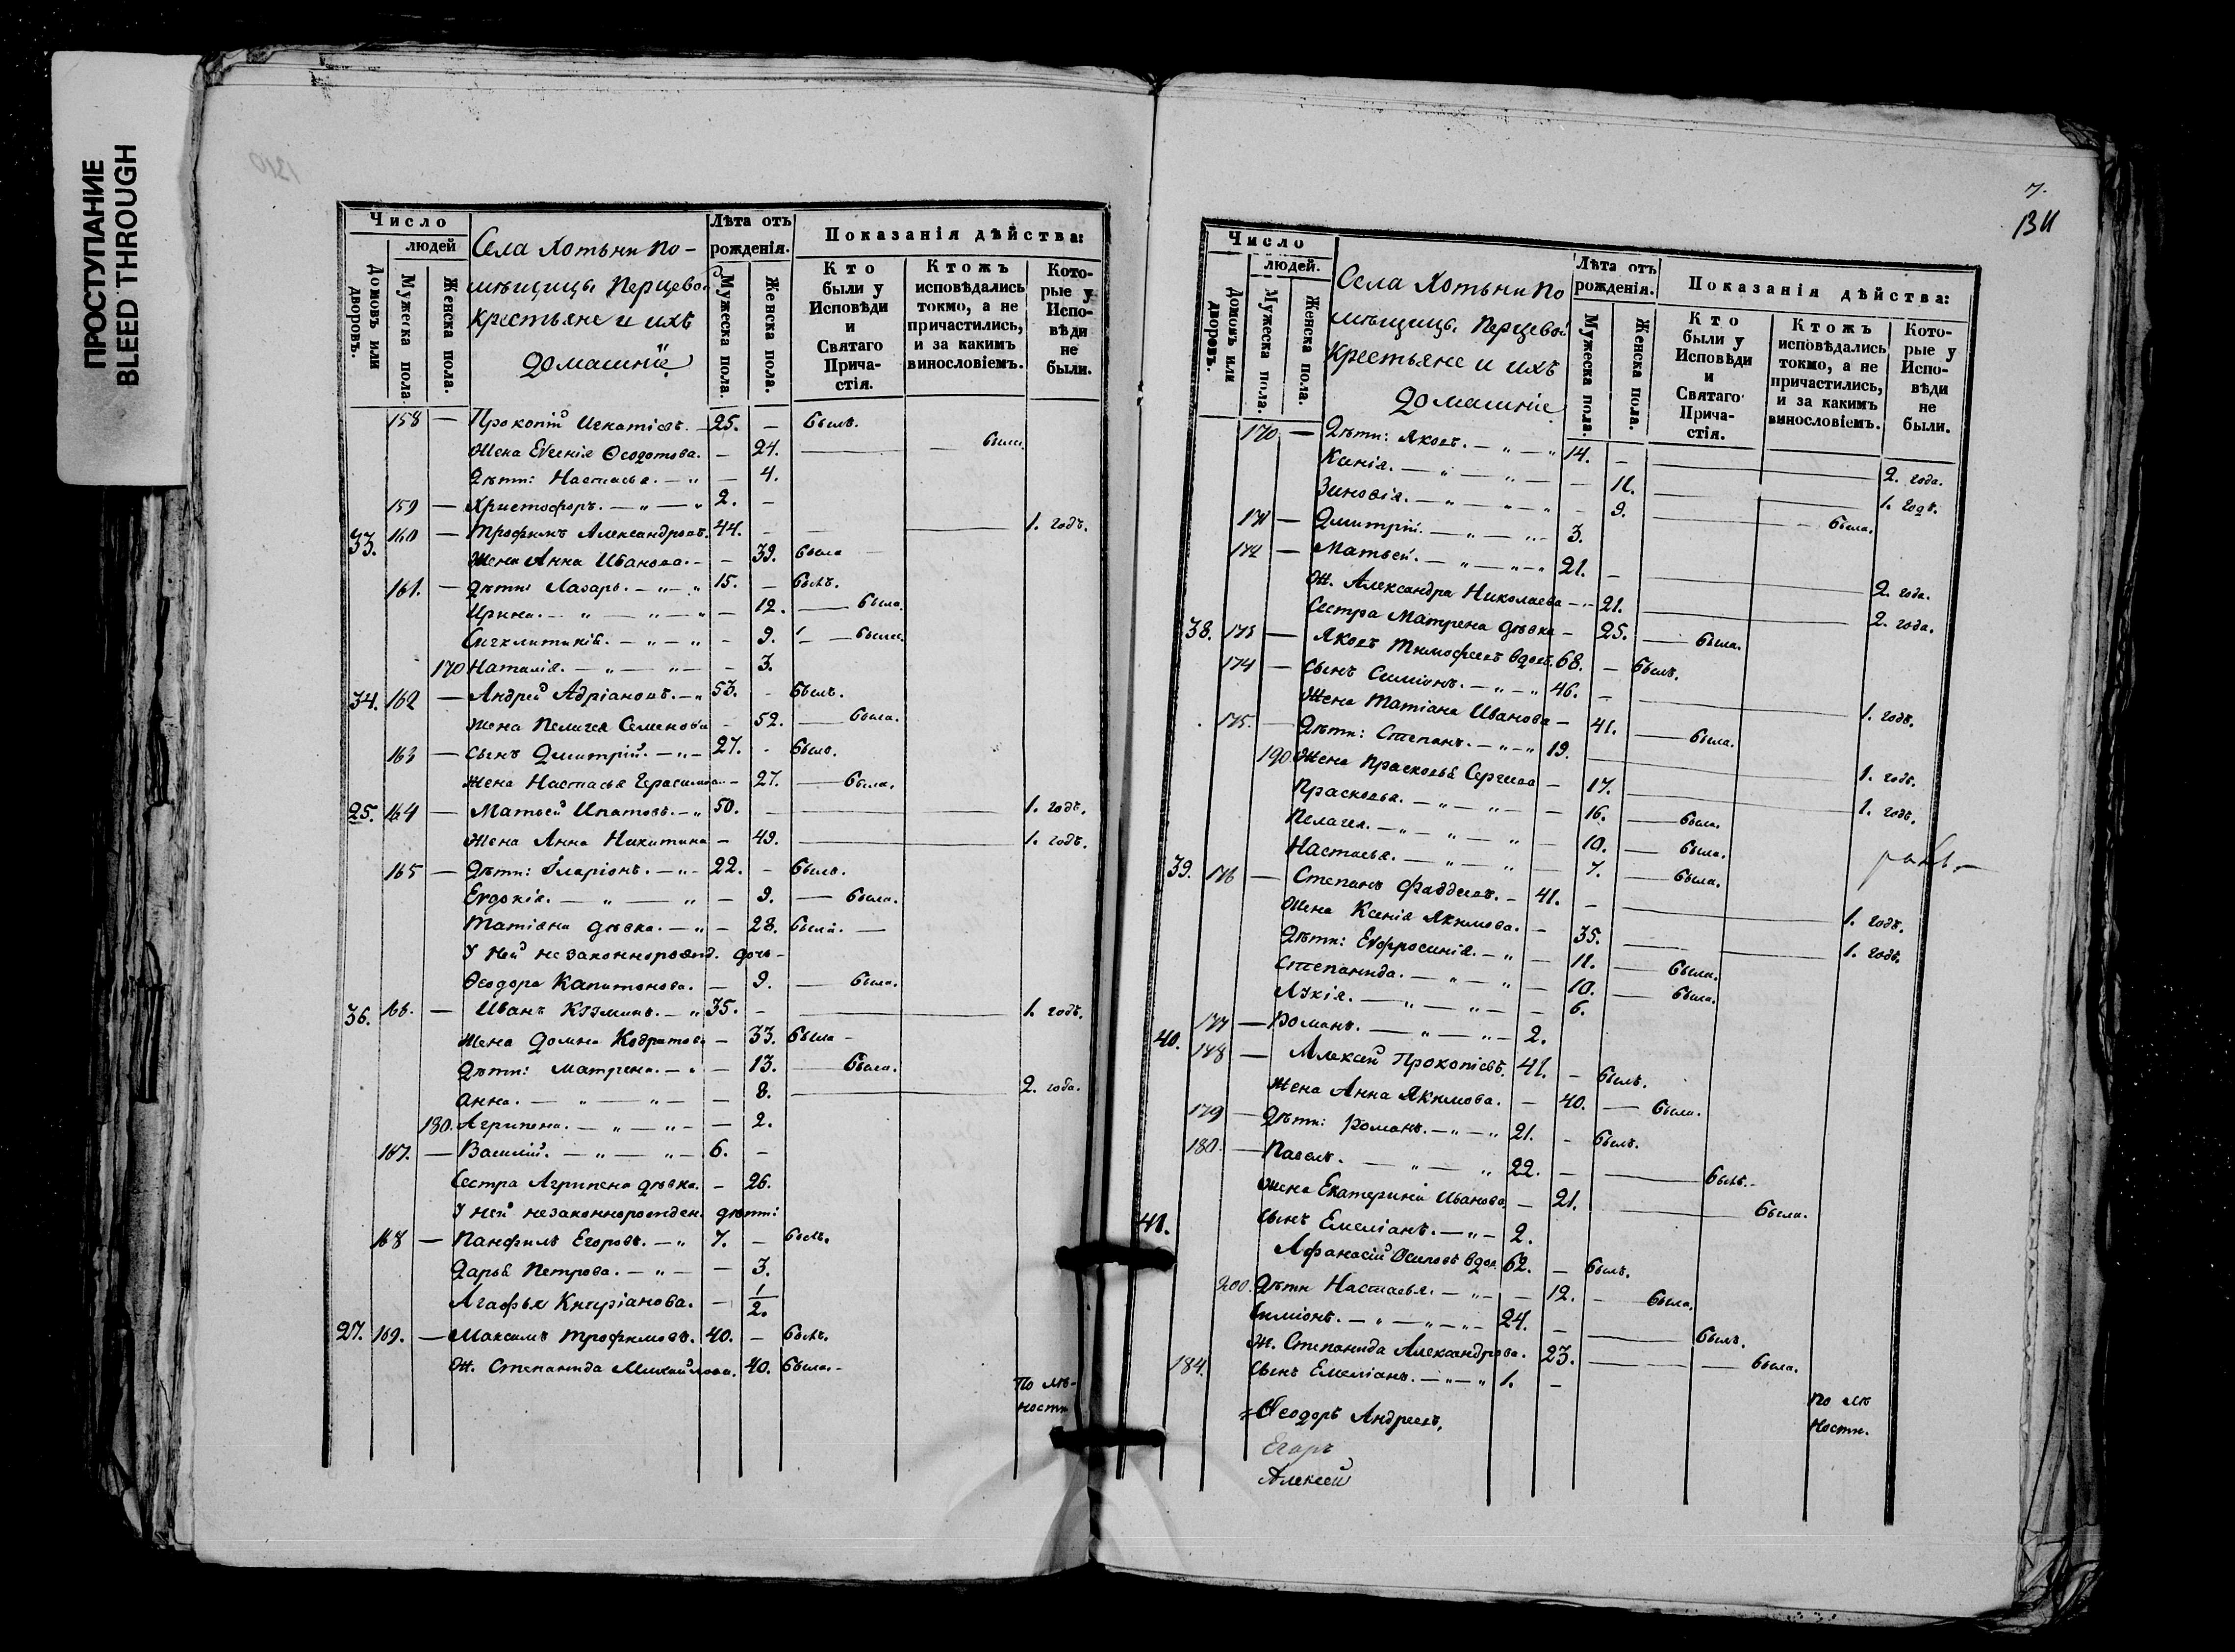 ПРОСТУПАНИЕ
BLEED THROUGH
1310
Число
людей
Домовъ или дворовъ.
Мужеска пола.
Женска пола.
Села Хотьни по-
мѣщицы Перцевой
крестьяне и ихъ
домашніе
Лѣта отъ рожденія.
Мужеска пола.
Женска пола.
Показанія дѣйства:
Кто были у Исповѣди и Святаго Прича-стія.
Ктожъ исповѣдались токмо, а не причастились, и за какимъ винословіемъ.
Кото-рые у Испо-вѣди не были.
158 — Прокопій Игнатіевъ. — 25. — былъ.
Жена Евгенія Ѳеодотова. — 24. — была
Дѣти: Настасья. — „ — 4.
159 — Христофоръ. — „ — „ 2. —
33. 160 — Трофимъ Александровъ. 44. — 1. годъ.
Жена Анна Иванова. — — 39. была
161. — Дѣти: Лазарь. — „ — „ 15. — былъ.
Ирина. — „ — „ — — 12. — была.
Сигклитикія. — „ — „ — 9. — была.
170 Наталія. — „ — „ — — 3.
34. 162 — Андрей Адріановъ. — „ 53. — былъ.
Жена Пелагея Семенова — 52. — была.
163 — Сынъ Дмитрій. — „ — 27. — былъ.
Жена Настасья Герасимова — 27. — была.
25. 164 — Матвей Ипатовъ. — „ 50. — 1. годъ.
Жена Анна Никитина — 49. — 1. годъ.
165 — Дѣти: Иларіонъ. — „ — 22. — былъ.
Евдокія. — „ — „ — 9. — была.
Татіана дѣвка. — „ — 28. была. —
У ней незаконнорожд. дочь —
Ѳеодора Капитонова. — 9. — была.
36. 166. — Иванъ Козминъ. — „ 35. — 1. годъ.
Жена Домна Кодратова — 33. была —
Дѣти: Матрена. — „ — 13. — была.
Анна. — „ — „ — — 8. — 2. года.
180. Агрипена. — „ — „ — — 2.
167. — Василій. — „ — „ — 6. —
Сестра Агрипена дѣвка. — 26.
У ней незаконнорожден. дѣти:
168 — Панфилъ Егоровъ. — „ 7. — былъ.
Дарья Петрова. — „ — — 3.
Агафья Кипріанова. — 1/2.
27. 169. — Максимъ Трофимовъ. 40. — былъ.
Ж. Степанида Михайлова. 40. была. —
По лѣ-
ности
7.
1311
Число
людей.
Домовъ или дворовъ.
Мужеска пола.
Женска пола.
Села Хотьни по
мѣщицы Перцевой
крестьяне и ихъ
домашніе
Лѣта отъ рожденія.
Мужеска пола.
Женска пола.
Показанія дѣйства:
Кто были у Исповѣди и Святаго Прича-стія.
Ктожъ исповѣдались токмо, а не причастились, и за какимъ винословіемъ.
Кото-рые у Испо-вѣди не были.
170 — Дѣти: Яковъ. — „ — „ 14. — 2. года.
Ксенія. — „ — „ — — 11. — 1. годъ.
Зиновія. — „ — „ — „ — 9. — была.
171 — Дмитрій. — „ — „ — 3.
172 — Матвей. — „ — „ — „ 21. — 2. года.
Ж. Александра Николаева — 21. — 2. года.
Сестра Матрена дѣвка — 25. — была.
38. 173 — Яковъ Тимофеевъ вдов. 68. — былъ.
174 — Сынъ Симіонъ. — „ — „ 46. — 1. годъ.
Жена Татіана Иванова — 41. — была.
175. — Дѣти: Степанъ. — „ — „ 19. — 1. годъ.
190 Жена Прасковья Сергеева — 17. — 1. годъ.
Прасковья. — „ — „ — — 16. — была.
Пелагея. — „ — „ — „ — 10. — была.
Настасья. — „ — „ — 7. — была.
39. 176 — Степанъ Фаддеевъ. — 41. — 1. годъ.
Жена Ксенія Якимова. — 35. — 1. годъ.
Дѣти: Евфросинія. — „ — 11. — была.
Степанида. — „ — „ — 10. — была.
Лукія. — „ — „ — — 6.
177 — Романъ. — „ — „ — 2.
40. 178 — Алексей Прокопіевъ. 41. — былъ.
Жена Анна Якимова. — 40. — была.
179 — Дѣти: Романъ. — „ — „ 21. — былъ.
180. — Павелъ. — „ — „ 22. — былъ. —
Жена Екатерина Иванова — 21. — была.
Сынъ Емеліанъ. — „ — 2.
41. Афанасій Осиповъ вдов. 62. — былъ.
200. Дѣти Настасья. — „ — — 12. — была.
Симіонъ. — „ — „ — „ — 24. — былъ.
Ж. Степанида Александрова. 23. — была.
184. Сынъ Емеліанъ. — „ — „ 1. —
По лѣ
ности.
Ѳеодоръ Андреевъ,
Егоръ
Алексей